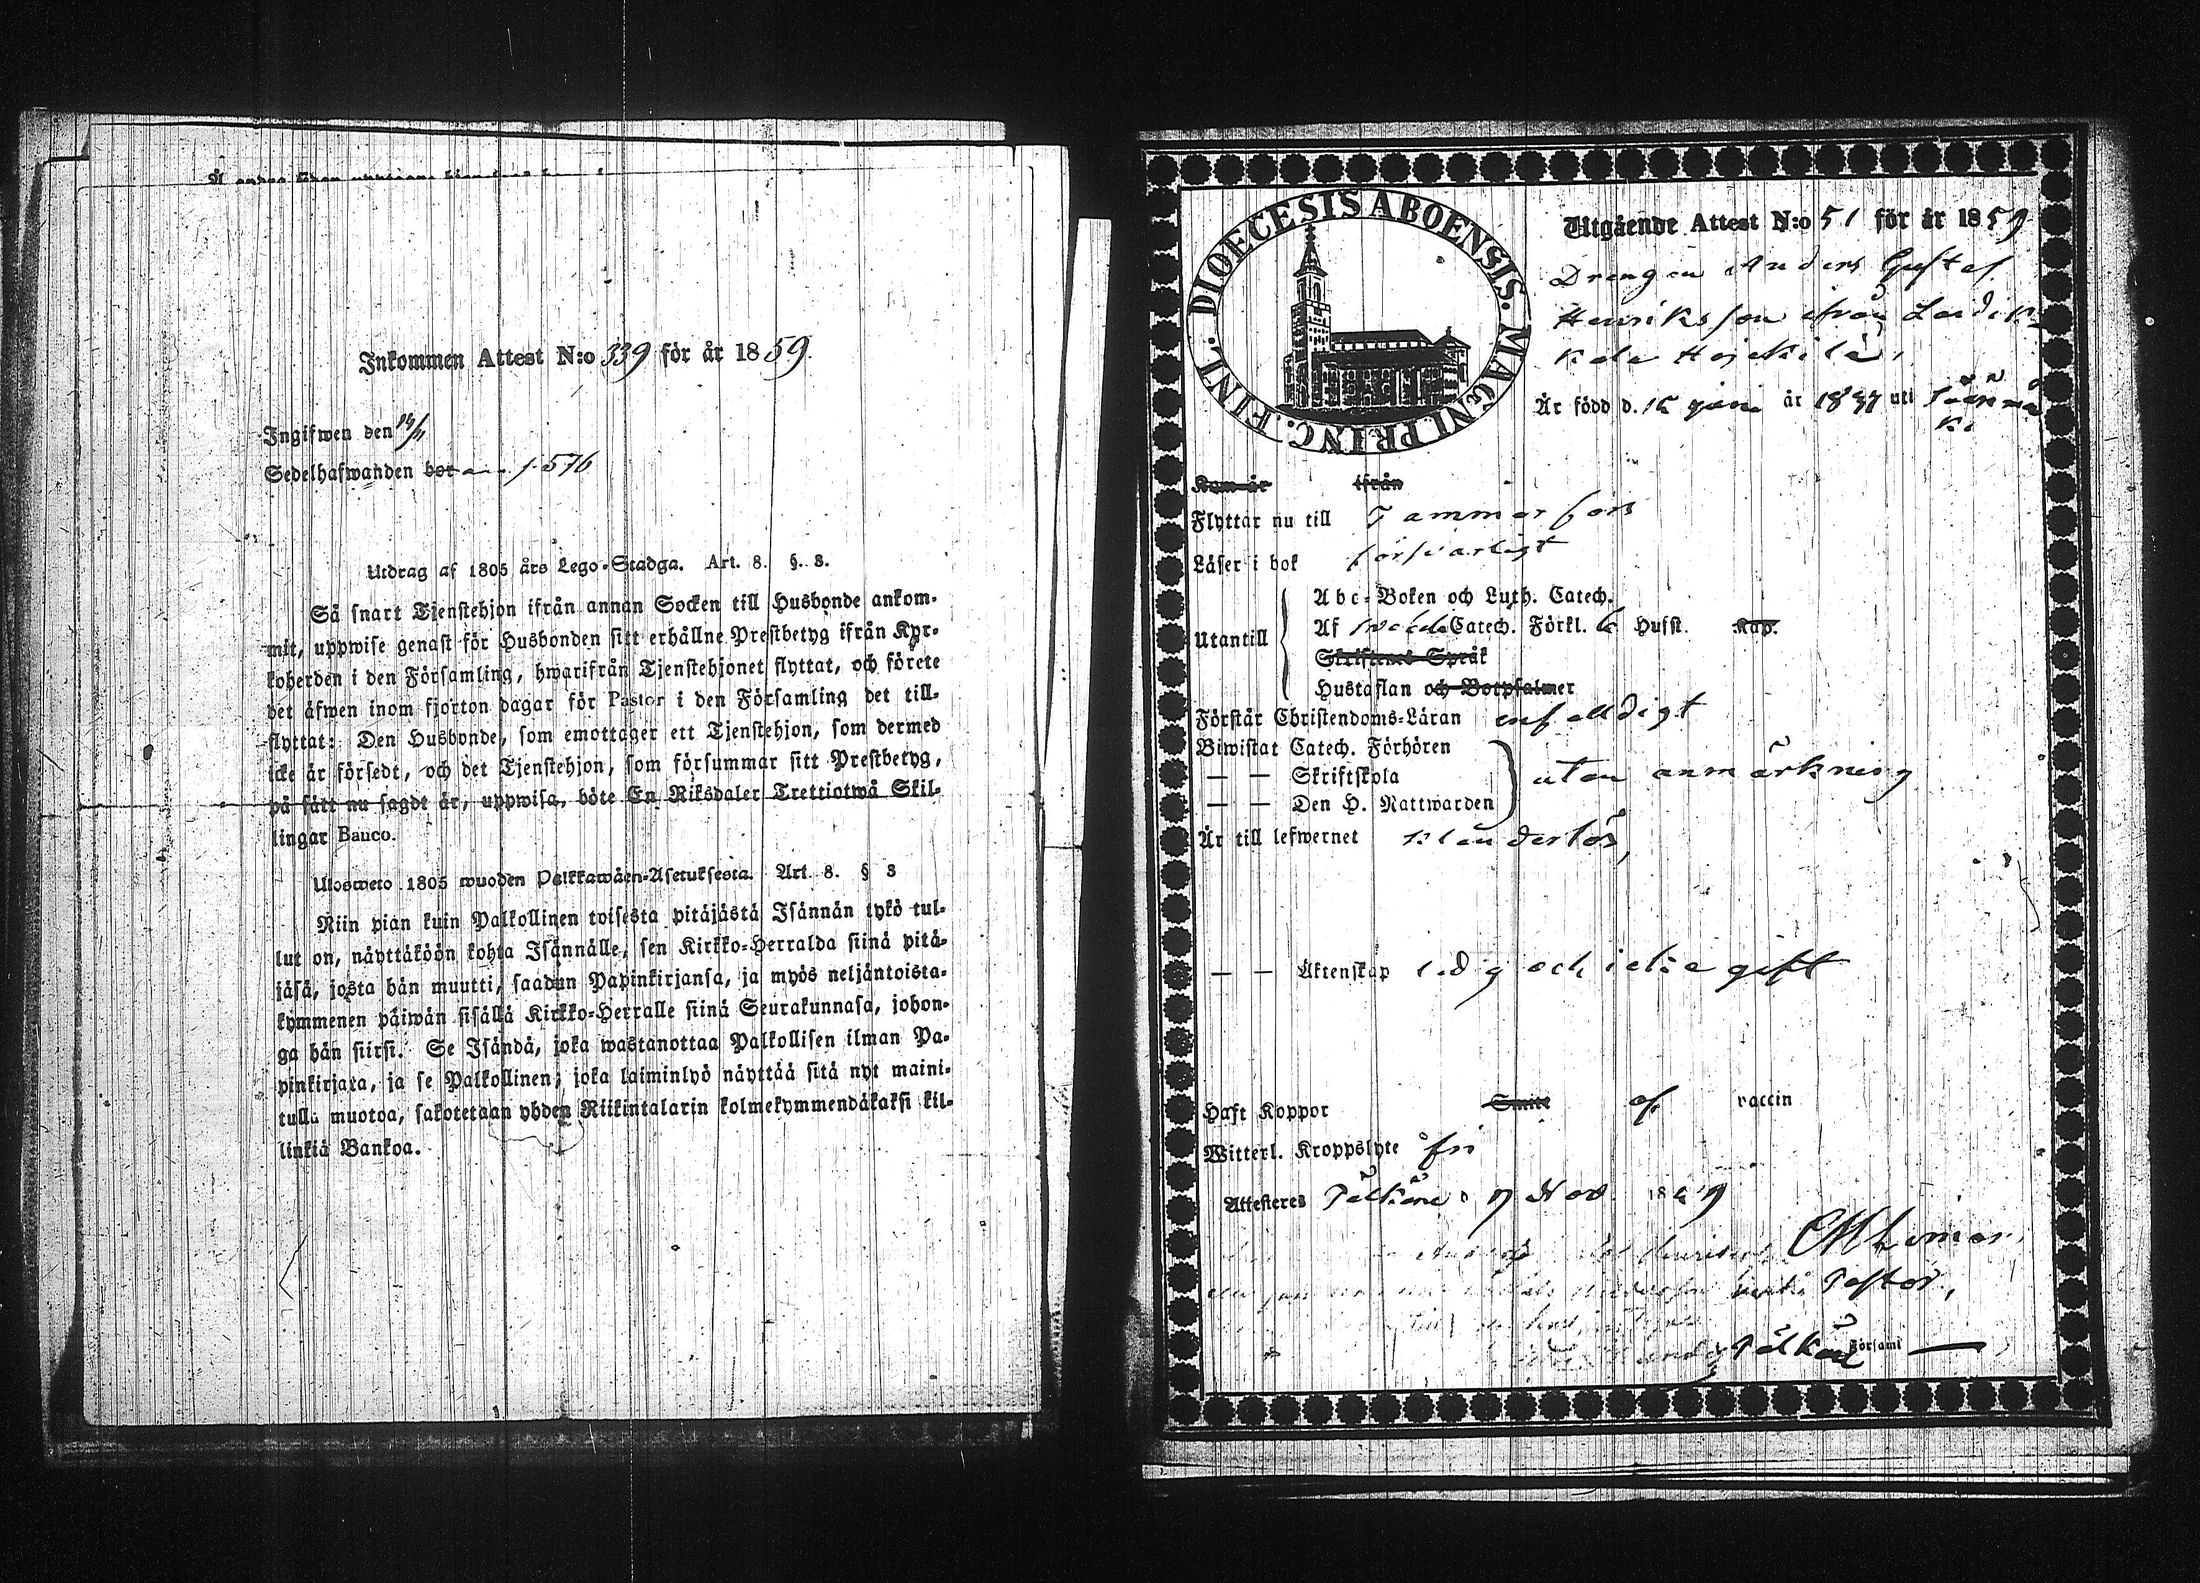 Inkommen Attest N:o 339 för år 1859.
Ingifwen den 14/11
Sedelhafwanden bor p. 576
Utdrag af 1805 års Lego-Stadga. Art. 8. §. 3.
Så snart Tjenstehjon ifrån annan Socken till Husbonde ankom-
mit, uppwise genast för Husbonden sitt erhållne Prestbetyg ifrån Kyr-
koherden i den Församling, hwarifrån Tjenstehjonet flyttat, och förete
det äfwen inom fjorton dagar för Pastor i den Församling det till-
flyttat: Den Husbonde, som emottager ett Tjenstehjon, som dermed
icke är försedt, och det Tjenstehjon, som försummar sitt Prestbetyg,
på sätt nu sagdt är, uppwisa, böte En Riksdaler Trettiotwå Skil-
lingar Banco.
Ulosweto 1805 wuoden Palkkawäen-Asetuksesta. Art. 8. § 3
Niin pian kuin Palkollinen toisesta pitäjästä Isännän tykö tul-
lut on, näyttäköön kohta Isännälle, sen Kirkko-Herralda siinä pitä-
jäsä, josta hän muutti, saadun Papinkirjansa, ja myös neljäntoista-
kymmenen päiwän sisällä Kirkko-Herralle siinä Seurakunnasa, johon-
ga hän siirsi. Se Isändä, joka wastanottaa Palkollisen ilman Pa-
pinkirjata, ja se Palkollinen, joka laiminlyö näyttää sitä nyt maini-
tulla muotoa, sakotetaan yhden Riikintalarin kolmekymmendäkaksi kil-
linkiä Bankoa.
DIOECESIS ABOENSIS. MAGNI PRINC. FINL.
Utgående Attest N:o 51 för år 1859
Drengen Anders Gustaf
Henriksson ifrån Laidik
kala Hejkkilä,
Är född d. 15 är 1837 uti
Kom år ifrån
Flyttar nu till Tammerfors
Läser i bok försvarligt
Abc-Boken och Luth. Catech.
Utantill Af Catech. Förkl. Husst. Kap.
Skriftenes Språk
Hustaflan och Botpsalmer
Förstår Christendoms-Läran enfalldigt
Biwistat Catech. Förhören
— — Skriftskola utan anmärkning
— — Den H. Nattwarden
Är till lefwernet klanderlös,
— — Äktenskap ledig och icke gift
Haft Koppor Smitt af vaccin
Witterl. Kroppslyte fri
Attesteres Pälkäne d 7 Nov 1859
Pastor,
Pälkäne Församl